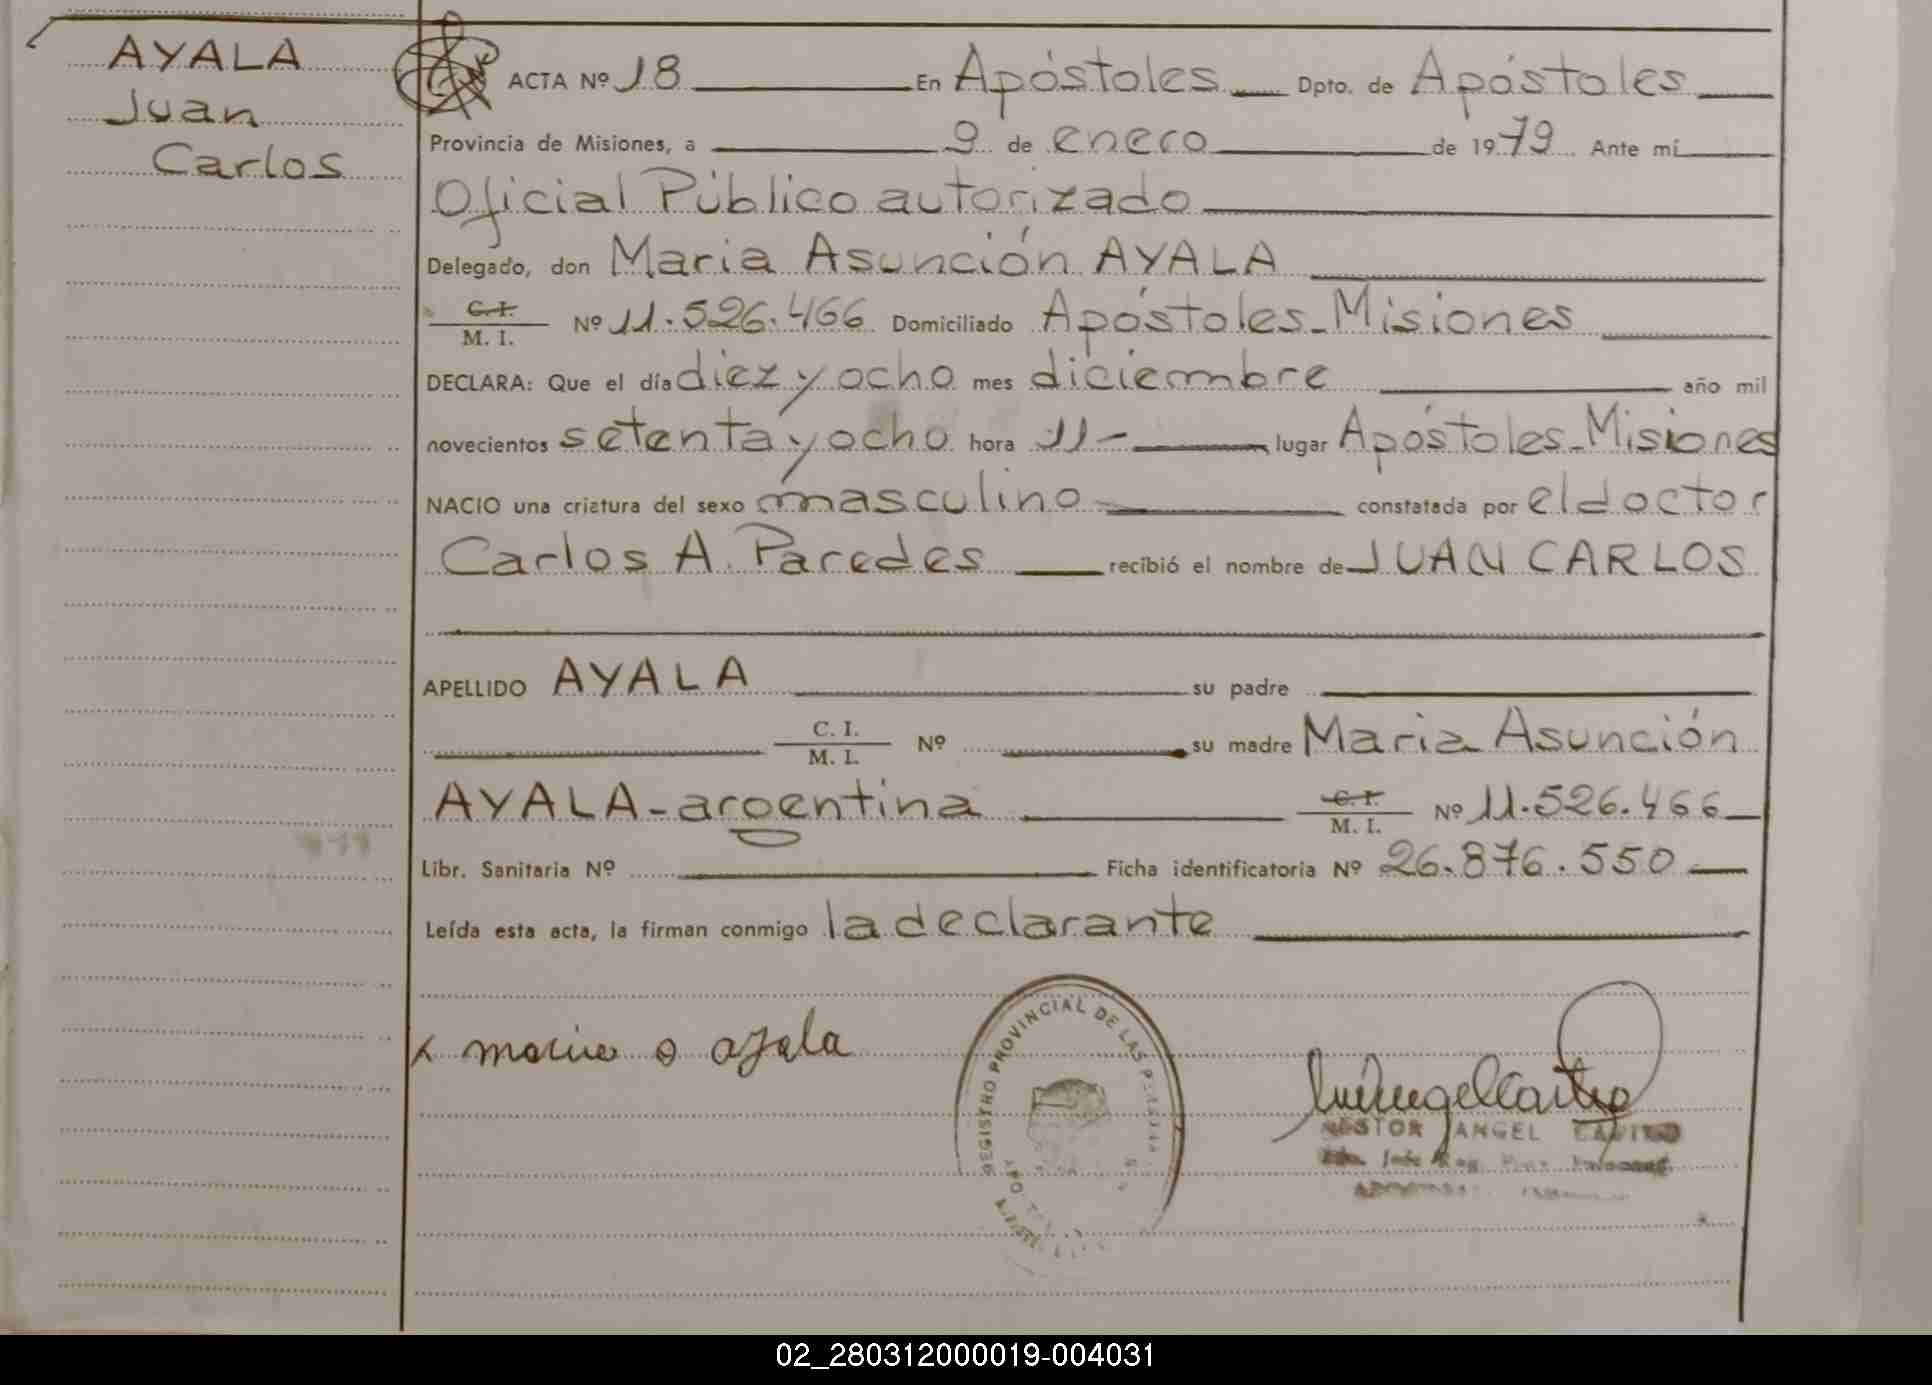 AYALA
Juan
Carlos
ACTA Nº 18 En Apóstoles Dpto. de Apóstoles
Provincia de Misiones, a 9 de enero de 1979 Ante mí
Oficial Público autorizado
Delegado, don Maria Asunción AYALA
C.I.
M. I. Nº 11.526.466 Domiciliado Apóstoles-Misiones
DECLARA: Que el día diez y ocho mes diciembre año mil
novecientos setenta y ocho hora 11- lugar Apóstoles-Misiones
NACIO una criatura del sexo masculino constatada por el doctor
Carlos A. Paredes recibió el nombre de JUAN CARLOS
APELLIDO AYALA su padre
C. I.
M. I. Nº su madre Maria Asunción
AYALA-argentina C.I.
M. I. Nº 11.526.466
Libr. Sanitaria Nº Ficha identificatoria Nº 26.876.550
Leída esta acta, la firman conmigo la declarante
x maria a ayala
REGISTRO PROVINCIAL DE LAS
NESTOR ANGEL
02_280312000019-004031